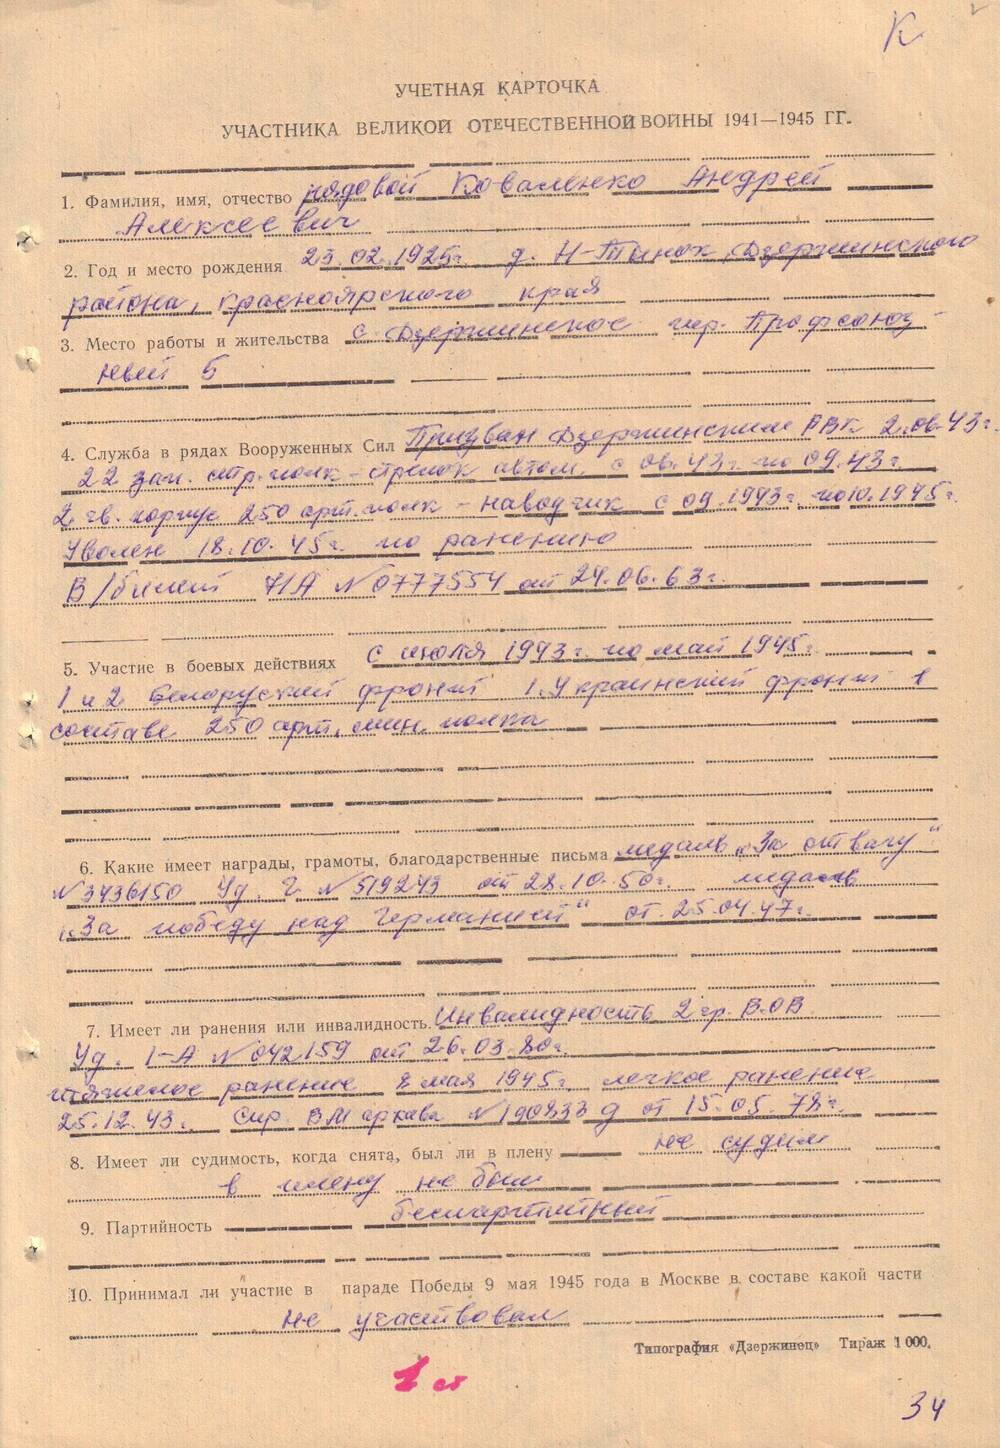 К
УЧЕТНАЯ КАРТОЧКА
УЧАСТНИКА ВЕЛИКОЙ ОТЕЧЕСТВЕННОЙ ВОЙНЫ 1941—1945 ГГ.
1. Фамилия, имя, отчество рядовой Коваленко Андрей
Алексеевич
2. Год и место рождения 23.02.1925г. д. Н-Танай, Дзержинского
района, Красноярского края
3. Место работы и жительства с Дзержинское пер. Профсоюз-
ный 5
4. Служба в рядах Вооруженных Сил Призван Дзержинским РВК 2.06.43г.
22 зап. стр. полк - стрелок автом. с 06.43г. по 09.43г.
2 гв. корпус 250 арт. полк - наводчик с 09.1943г. по 10.1945г.
Уволен 18.10.45г. по ранению
В/билет 71А № 0777554 от 24.06.63г.
5. Участие в боевых действиях с июля 1943г. по май 1945г.
1 и 2 Белоруский фронт 1.Украинский фронт в
составе 250 арт. мин. полка
6. Какие имеет награды, грамоты, благодарственные письма медаль „За отвагу"
№ 3436150 Уд. Г № 519243 от 28.10.50г. медаль
„За победу над Германией" от 25.04.47г.
7. Имеет ли ранения или инвалидность. Инвалидность 2 гр. В.ОВ
Уд. 1-А № 042159 от 26.03.80г.
тяжелое ранение 8 мая 1945г легкое ранение
25.12.43г. Спр. ВМ архива № 190833 д от 15.05.78г.
8. Имеет ли судимость, когда снята, был ли в плену не судим
в плену не был
9. Партийность беспартийный
10. Принимал ли участие в параде Победы 9 мая 1945 года в Москве в составе какой части
не участвовал
Типография «Дзержинец» Тираж 1 000.
1 ст
34